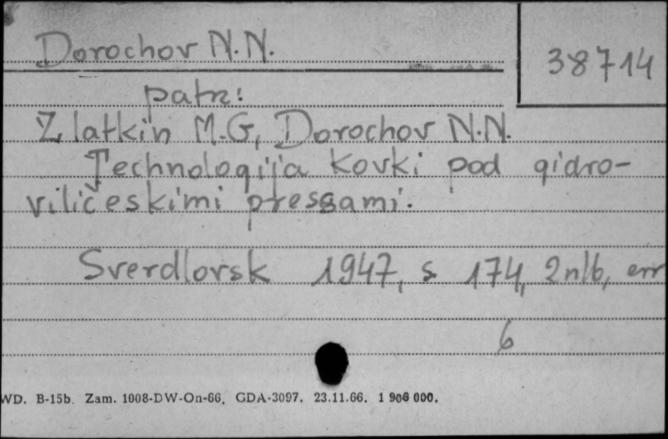 Dorochov N.N.
38714
patrz:
Zlatkin M.G, Dorochov N.N.
Technologija kovki pod gidro-
viličeskimi pressami.
Sverdlovsk 1947, s 174, 2nlb, err
6
WD. B-15b. Zam. 1008-DW-On-66. GDA-3097. 23.11.66. 1 906 000.